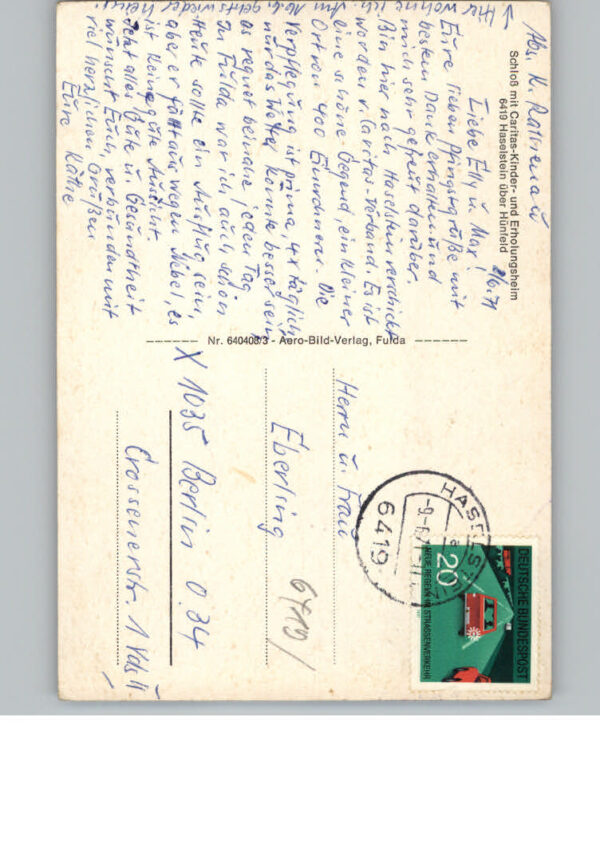 Schloß mit Caritas-Kinder- und Erholungsheim
6419 Haselstein über Hünfeld
Abs. K.
9/6.71
Liebe Elly u. Max!
Eure lieben Pfingstgrüße mit
bestem Dank erhalten und
mich sehr gefreut darüber.
Bin hier nach Haselstein verschickt
worden v. Caritas-Verband. Es ist
eine schöne Gegend, ein kleiner
Ort von 400 Einwohnern. Die
Verpflegung ist prima, 4x täglich,
nur das Wetter könnte besser sein,
es regnet beinahe jeden Tag.
In Fulda war ich auch schon
Heute sollte ein Ausflug sein,
aber er fällt aus wegen Nebel, es
ist keine gute Aussicht.
Jetzt alles Gute u. Gesundheit
wünscht Euch, verbunden mit
viel herzlichen Grüßen
Eure Käthe
↑ Hier wohne ich. Am 16.6. gehts wieder heim.
Nr. 640408/3 - Aero-Bild-Verlag, Fulda
Herrn u. Frau
Eberling
X 1035 Berlin O. 34
Crossenerstr. 1 Vds II
6419/
HASELSTEIN
a
-9.-6.71-17
6419
DEUTSCHE BUNDESPOST
20
NEUE REGELN IM STRASSENVERKEHR